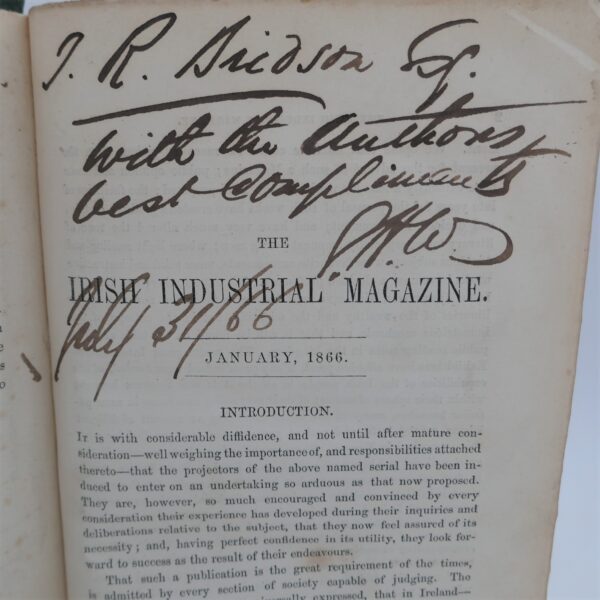 J. R. Bridson Esq.
with the Authors
best compliments
THE
IRISH INDUSTRIAL MAGAZINE.
July 31/66
JANUARY, 1866.
INTRODUCTION.
It is with considerable diffidence, and not until after mature con-
sideration—well weighing the importance of, and responsibilities attached
thereto—that the projectors of the above named serial have been in-
duced to enter on an undertaking so arduous as that now proposed.
They are, however, so much encouraged and convinced by every
consideration their experience has developed during their inquiries and
deliberations relative to the subject, that they now feel assured of its
necessity; and, having perfect confidence in its utility, they look for-
ward to success as the result of their endeavours.
That such a publication is the great requirement of the times,
is admitted by every section of society capable of judging. The
expressed, that in Ireland—